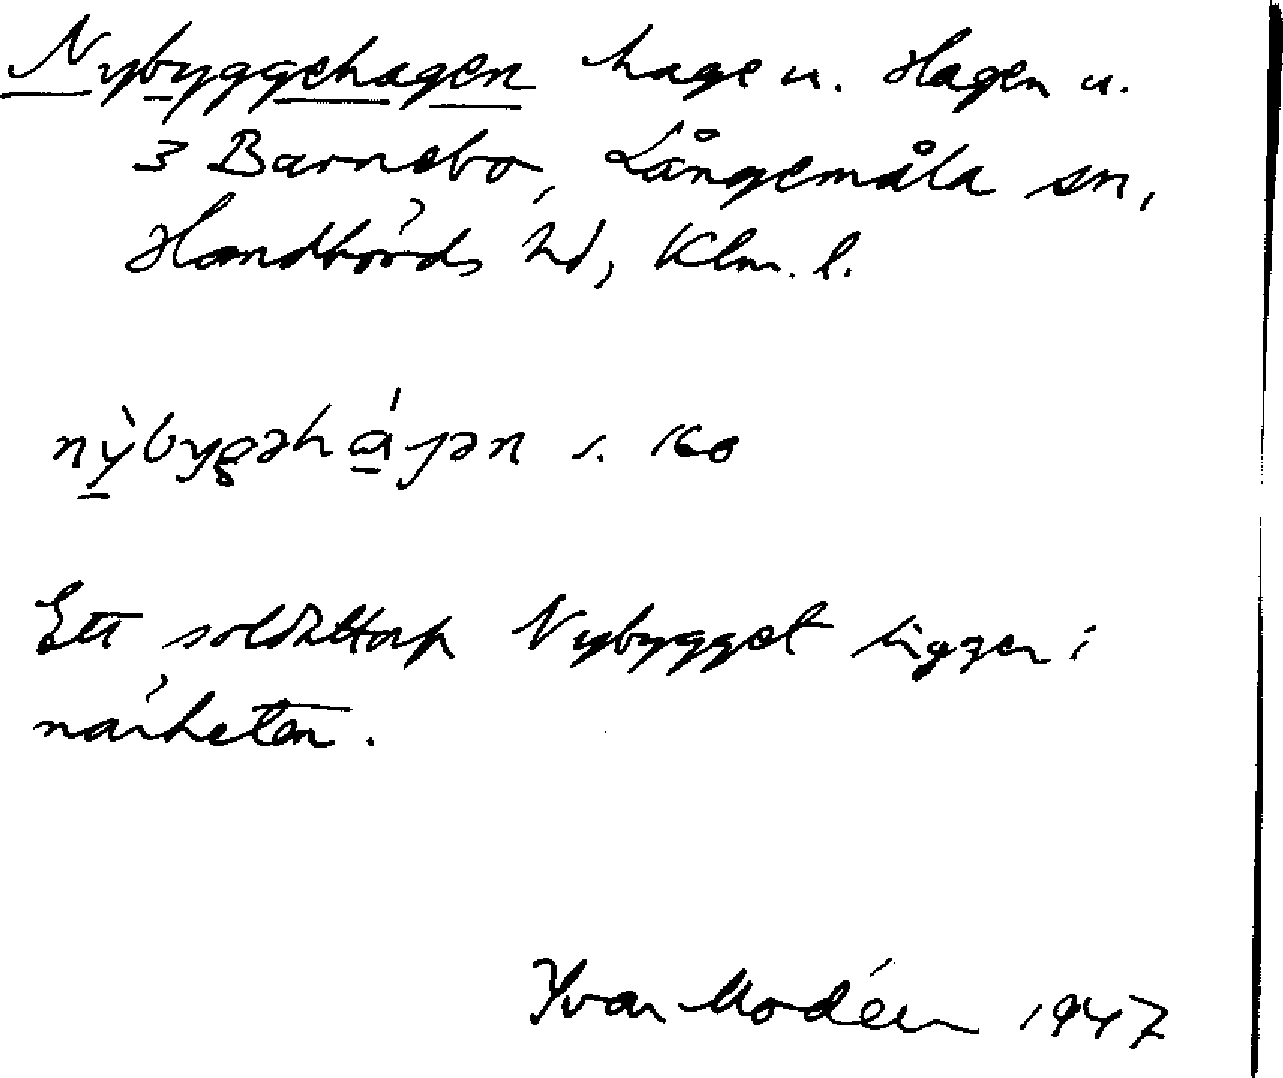 Nybyggehagen hage u. Hagen u.
3 Barnebo, Långemåla sn,
Handbörds hd, Klm. l.
nỳbygəhájən s. 160
Ett soldattorp Nybygget ligger i
närheten.
Yvar Modéer 1947